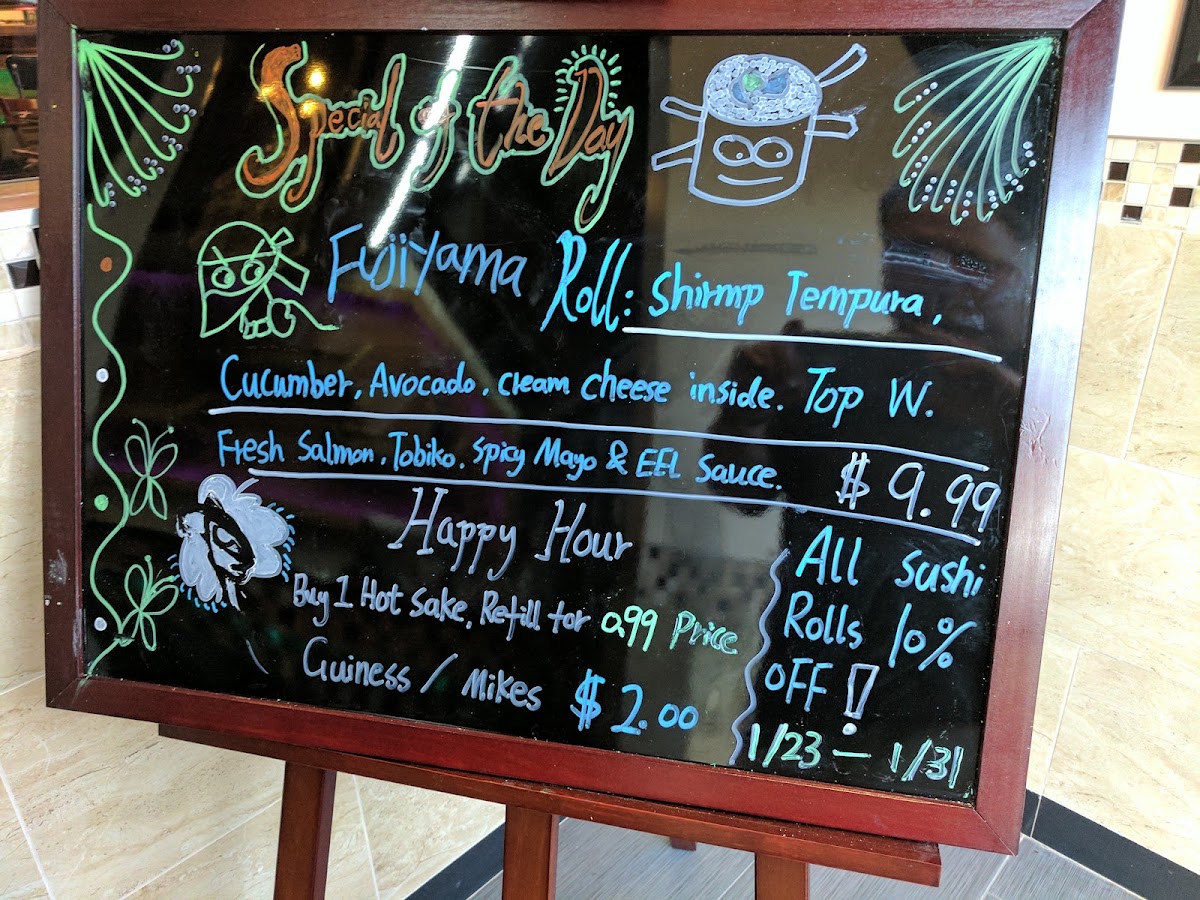 Special of the Day
Fujiyama Roll: Shirmp Tempura,
Cucumber, Avocado, cream cheese inside. Top W.
Fresh Salmon, Tobiko, spicy Mayo & EEL Sauce. $9.99
Happy Hour
Buy 1 Hot sake, Refill for 0.99 Price
Guiness / Mikes $2.00
All sushi
Rolls 10%
OFF!
1/23 — 1/31